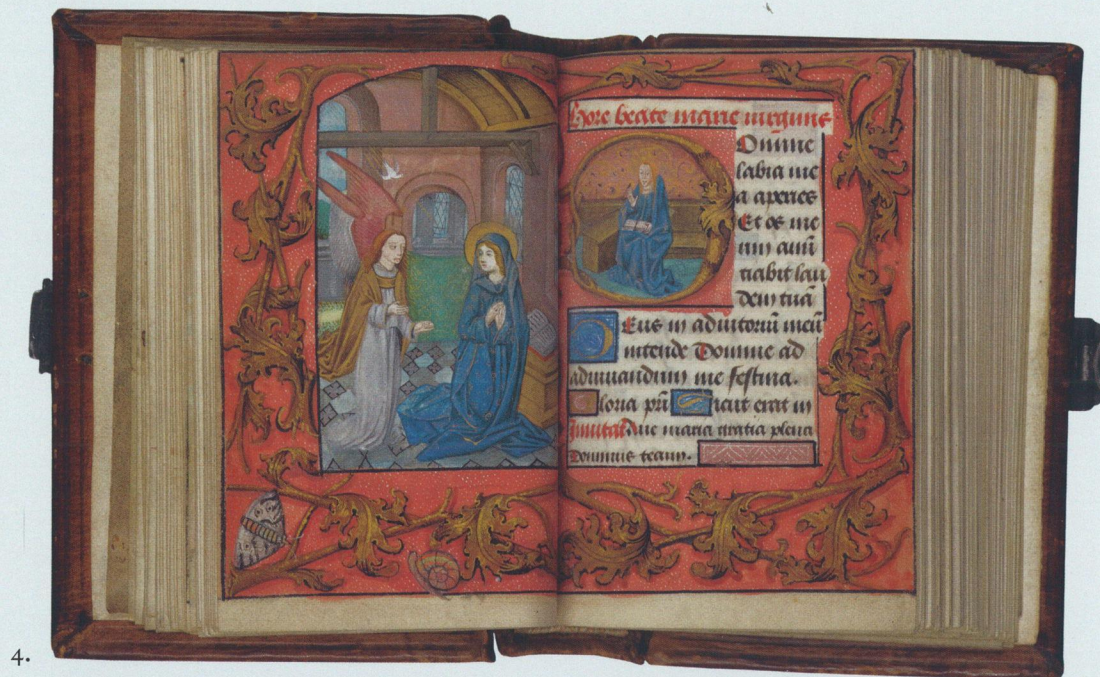 Hore beate marie virginis
Domine
labia me
a aperies
Et os me
um anū
tiabit lau
dem tuā
Deus in adiutoriū meū
intende Domine ad
adiuuandum me festina.
Gloria pri Sicut erat in
Inuitať Aue maria gratia plena
Dominus tecum.
4.